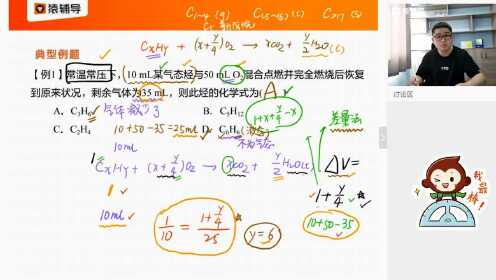 猿辅导
C₁~₄ (g) C₅~₁₆ (l) C≥17 (s)
典型例题
CxHy + (x+y/4)O₂ → xCO₂ + y/2 H₂O(l)
【例1】常温常压下，10 mL某气态烃与50 mL O₂混合点燃并完全燃烧后恢复
到原来状况，剩余气体为35 mL，则此烃的化学式为( A
A．C₃H₆ 气体减少了 B．C₅H₁₂ 1+x+y/4-x 差量法
C．C₂H₄ 10+50-35=25mL D．C₆H₆(液态)
10mL 不为气态
1 CxHy + (x+y/4)O₂ → xCO₂ + y/2 H₂O(l) ΔV=
1 1+y/4
10mL 1/10 = (1+y/4)/25 y=6 10+50-35
讨论区
我最棒!